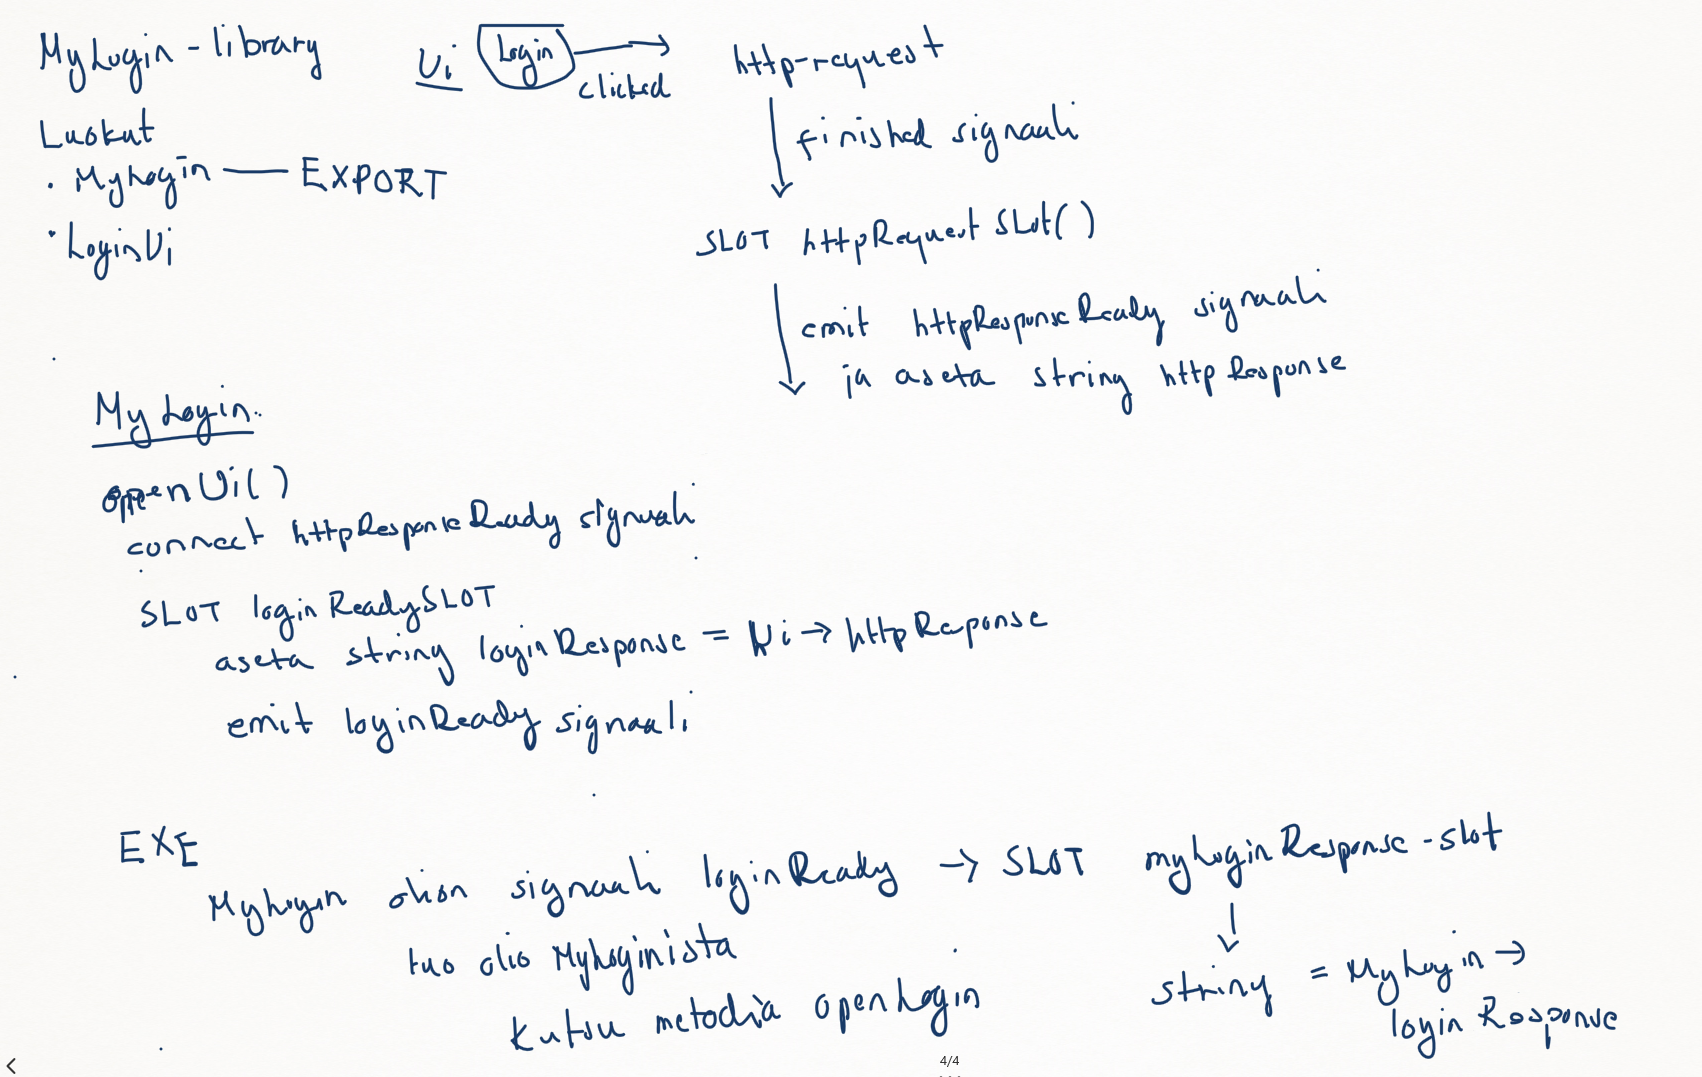 MyLogin - library
Luokut
• MyLogin — EXPORT
• LoginUi
Ui Login → clicked http-request
↓ finished signaali
SLOT httpRequestSlot()
↓ emit httpResponseReady signaali
ja aseta string httpResponse
MyLogin
openUi()
connect httpResponseReady signaali
SLOT loginReadySLOT
aseta string loginResponse = Ui → httpReponse
emit loginReady signaali
EXE
MyLogin olion signaali loginReady → SLOT myLoginResponse-slot
tuo olio MyLoginista
kutsu metodia openLogin
↓
string = MyLogin →
loginResponse
4/4